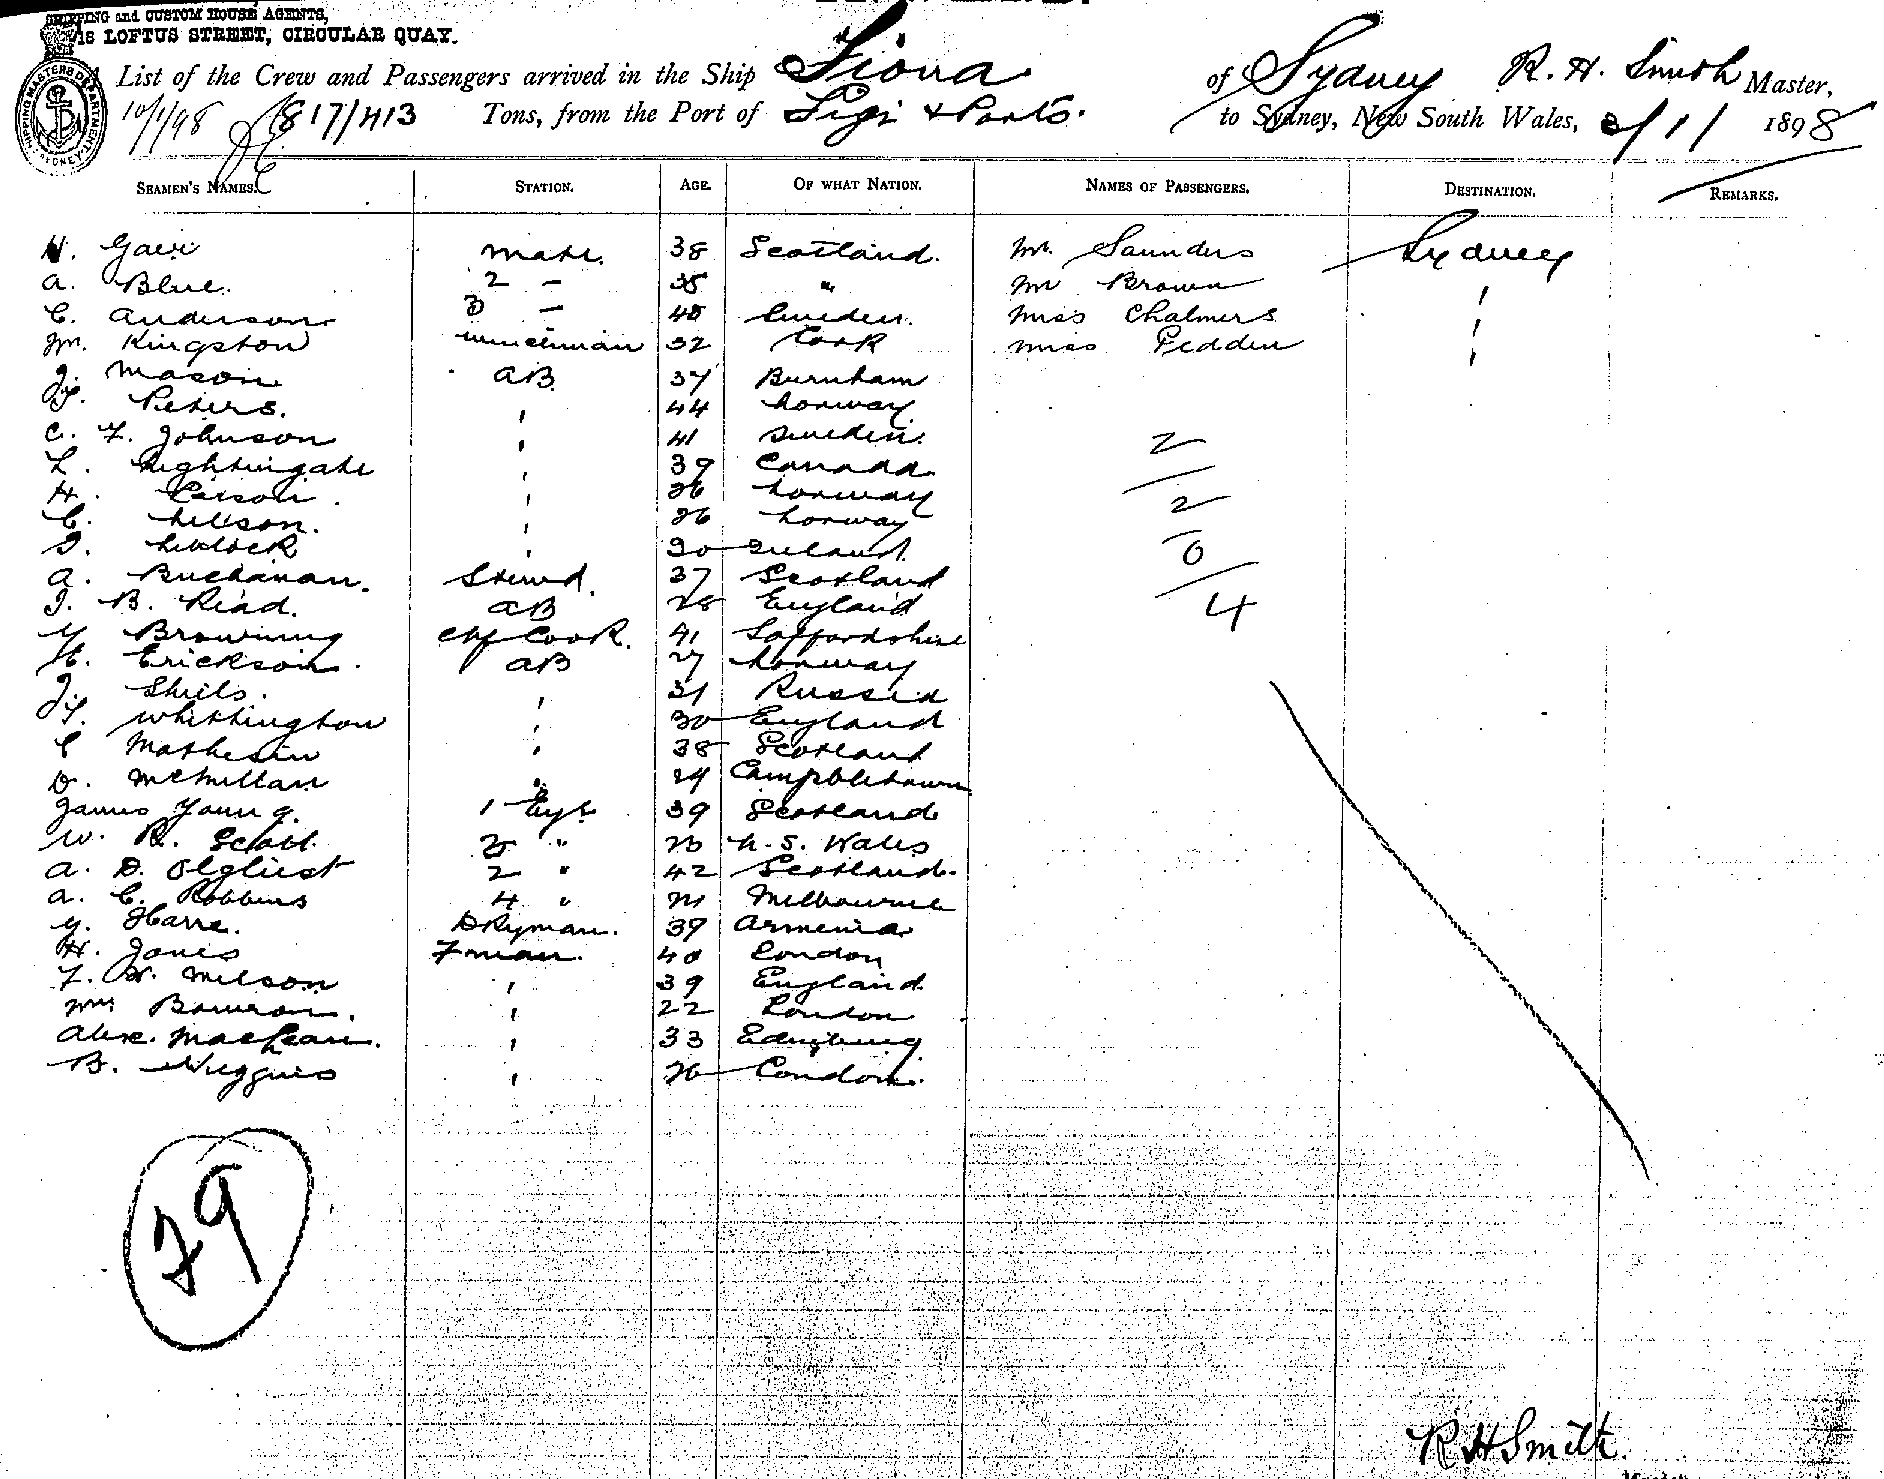 SHIPPING and CUSTOM HOUSE AGENTS,
18 LOFTUS STREET, CIRCULAR QUAY.
List of the Crew and Passengers arrived in the Ship Fiona of Sydney R. H. Smith Master,
10/1/98 817/413 Tons, from the Port of Fiji & Ports. to Sydney, New South Wales, 1898
SEAMEN'S NAMES. STATION. AGE. OF WHAT NATION. NAMES OF PASSENGERS. DESTINATION. REMARKS.
Mate. 38 Scotland. Mr. Saunders Sydney
A. Blue. 2 - " Mr Brown
C. Anderson 3 - Sweden. Miss Chalmers
Wm. Kingston Winchman 32 Cork Miss Pedden
J. Mason AB 37 Burnham
Peters. 44 Norway
C. F. Johnson 41 Sweden. 2
L. Nightingale 39 Canada
H. 26 Norway 2
C. Nilson. 26 Norway
30 Ireland. 0
A. Buchanan. Stewd. 37 Scotland
J. B. Read. AB 28 England 4
Browning Chf Cook. 41 Staffordshire
H. Erickson. AB 27 Norway
Shiels. 31 Russia
Whittington 30 England
C Mathesin 38 Scotland
D. McMillan 24 Campbletown
James Young. 1 Eng 39 Scotland
W. R. Scott. " N. S. Wales
A. D. 2 " 42 Scotland.
A. C. Robbins 4 " Melbourne
G. Harre. DKyman. 39 Armenia
H. Jones Fman. 40 London
F. Milson 39 England
Wm. Bowron. 22 London
Alex. MacLean. 33 Edinburg
B. Huggins 26 London.
29
R H Smith